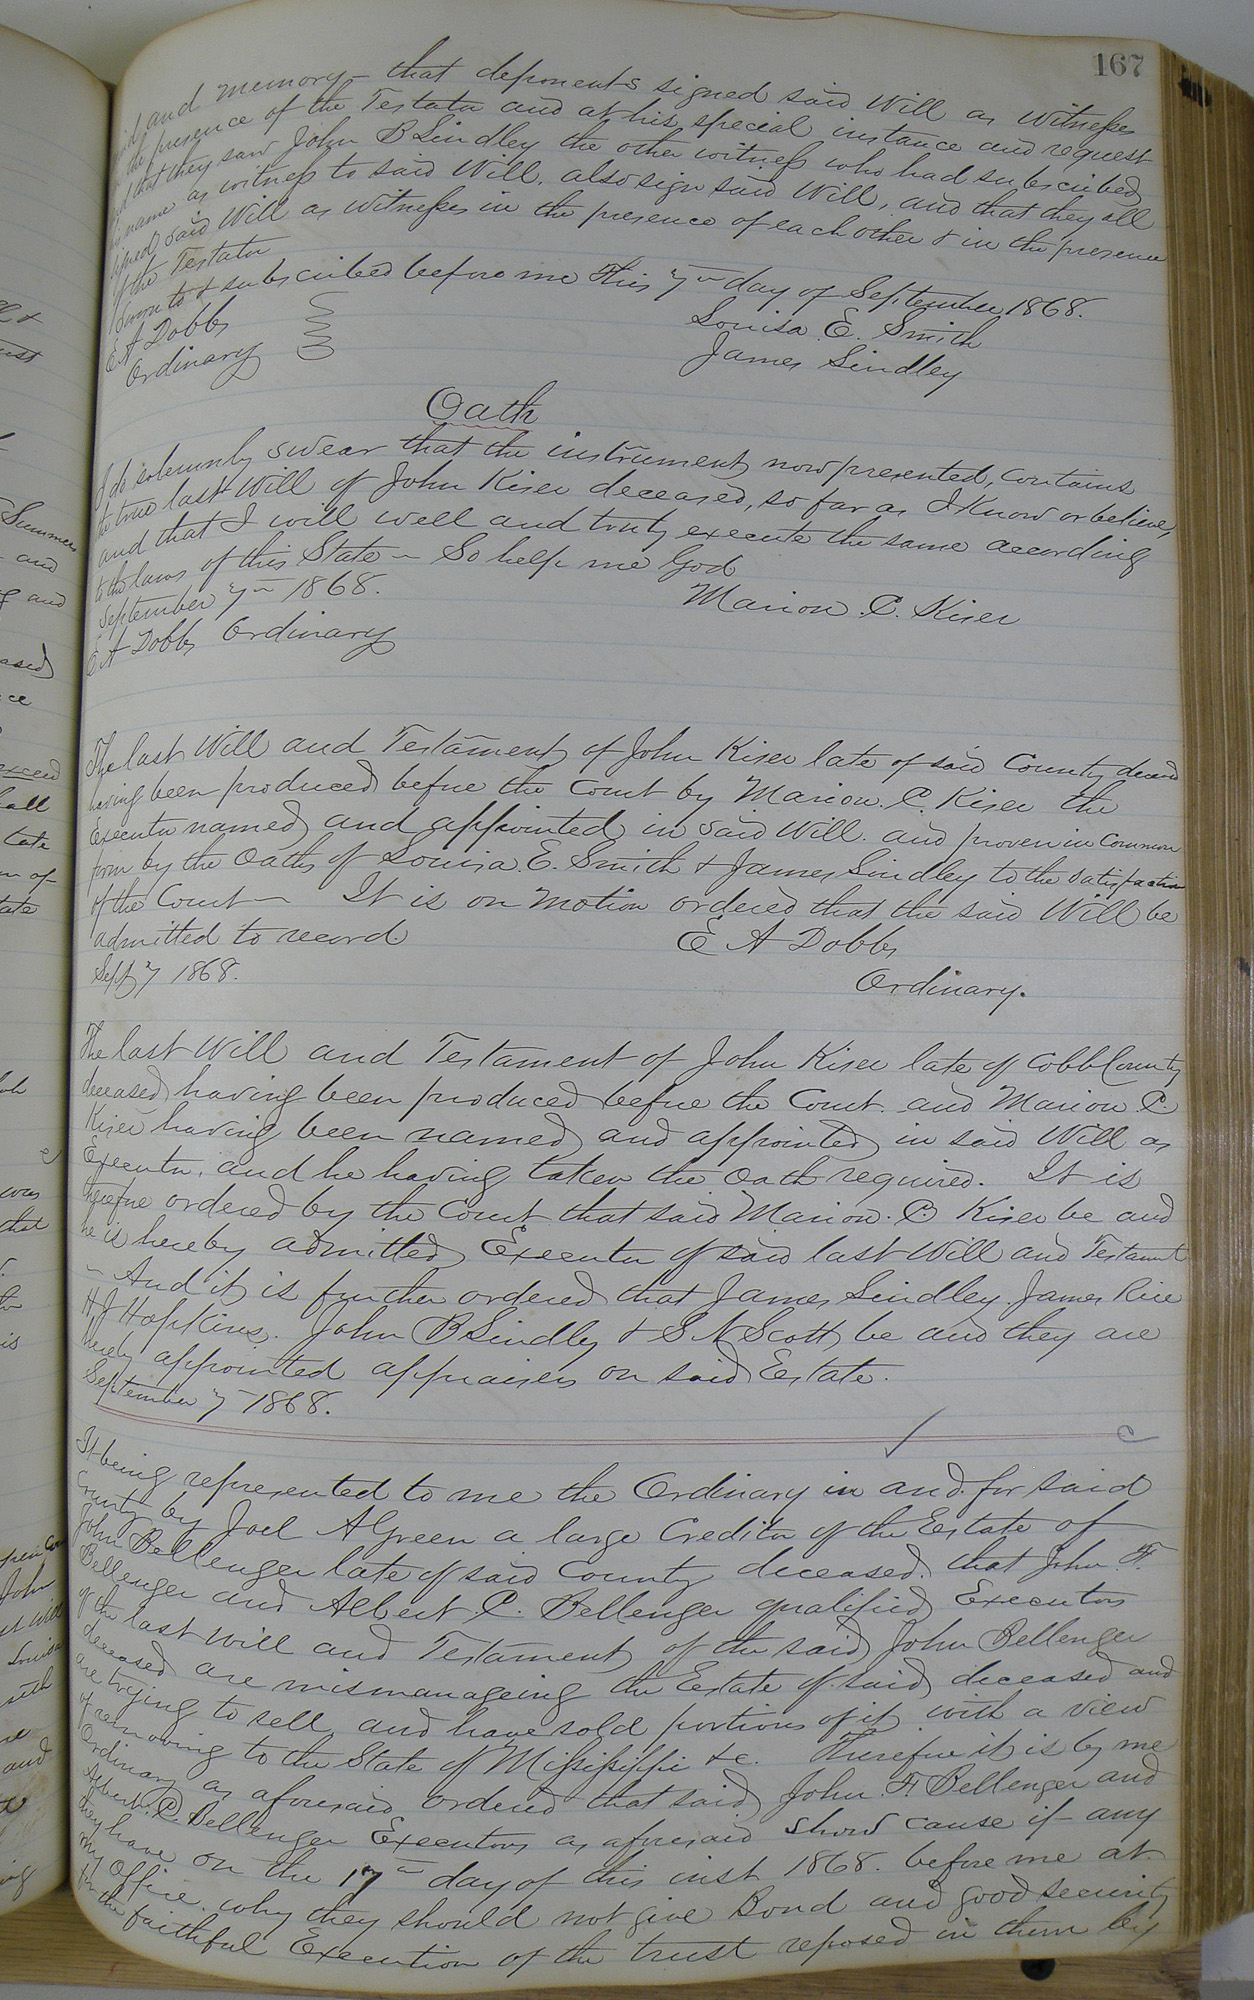 167
mind and memory - that deponents signed said Will as Witnesses
in the presence of the Testator and at his special instance and request
and that they saw John B Lindley the other witness who had subscribed
his name as witness to said Will. also sign said Will, and that they all
signed said Will as Witnesses in the presence of each other & in the presence
of the Testator
Sworn to & subscribed before me This 7th day of September 1868.
E A Dobbs
Ordinary
Louisa E. Smith
James Lindley
Oath
I do solemnly swear that the instrument now presented, contains
the true last Will of John Kiser deceased, so far as I Know or believe,
and that I will well and truly execute the same according
to the laws of this State - So help me God
September 7th 1868.
Marion C. Kiser
E A Dobbs Ordinary
The last Will and Testament of John Kiser late of said County deceased
having been produced before the Court by Marion C. Kiser the
Executor named and appointed in said Will. and proven in Common
form by the Oaths of Louisa E. Smith & James Lindley to the satisfaction
of the Court - It is on motion ordered that the said Will be
admitted to record
E A Dobbs
Sept 7 1868.
Ordinary.
The last Will and Testament of John Kiser late of Cobb County
deceased having been produced before the Court. and Marion C.
Kiser having been named and appointed in said Will as
Executor. and he having taken the Oath required. It is
therefore ordered by the Court that said Marion. C. Kiser be and
he is hereby admitted Executor of said last Will and Testament
- And it is further ordered that James Lindley. James Rice
H J Hopkins. John B Lindley & S N Scott be and they are
hereby appointed appraisers on said Estate.
September 7 1868.
It being represented to me the Ordinary in and for said
County by Joel A Green a large Creditor of the Estate of
John Bellenger late of said County deceased. that John. F.
Bellenger and Albert. C. Bellenger qualified Executors
of the last Will and Testament of the said John Bellenger
deceased are mismanageing the Estate of said deceased and
are trying to sell and have sold portions of it with a view
of removing to the State of Mississippi &c. Therefore it is by me
Ordinary as aforesaid ordered that said John. F. Bellenger and
Albert. C. Bellenger Executors as aforesaid show cause if any
they have on the 17th day of this inst 1868. before me at
my Office. why they should not give Bond and good security
for the faithful Execution of the trust reposed in them by